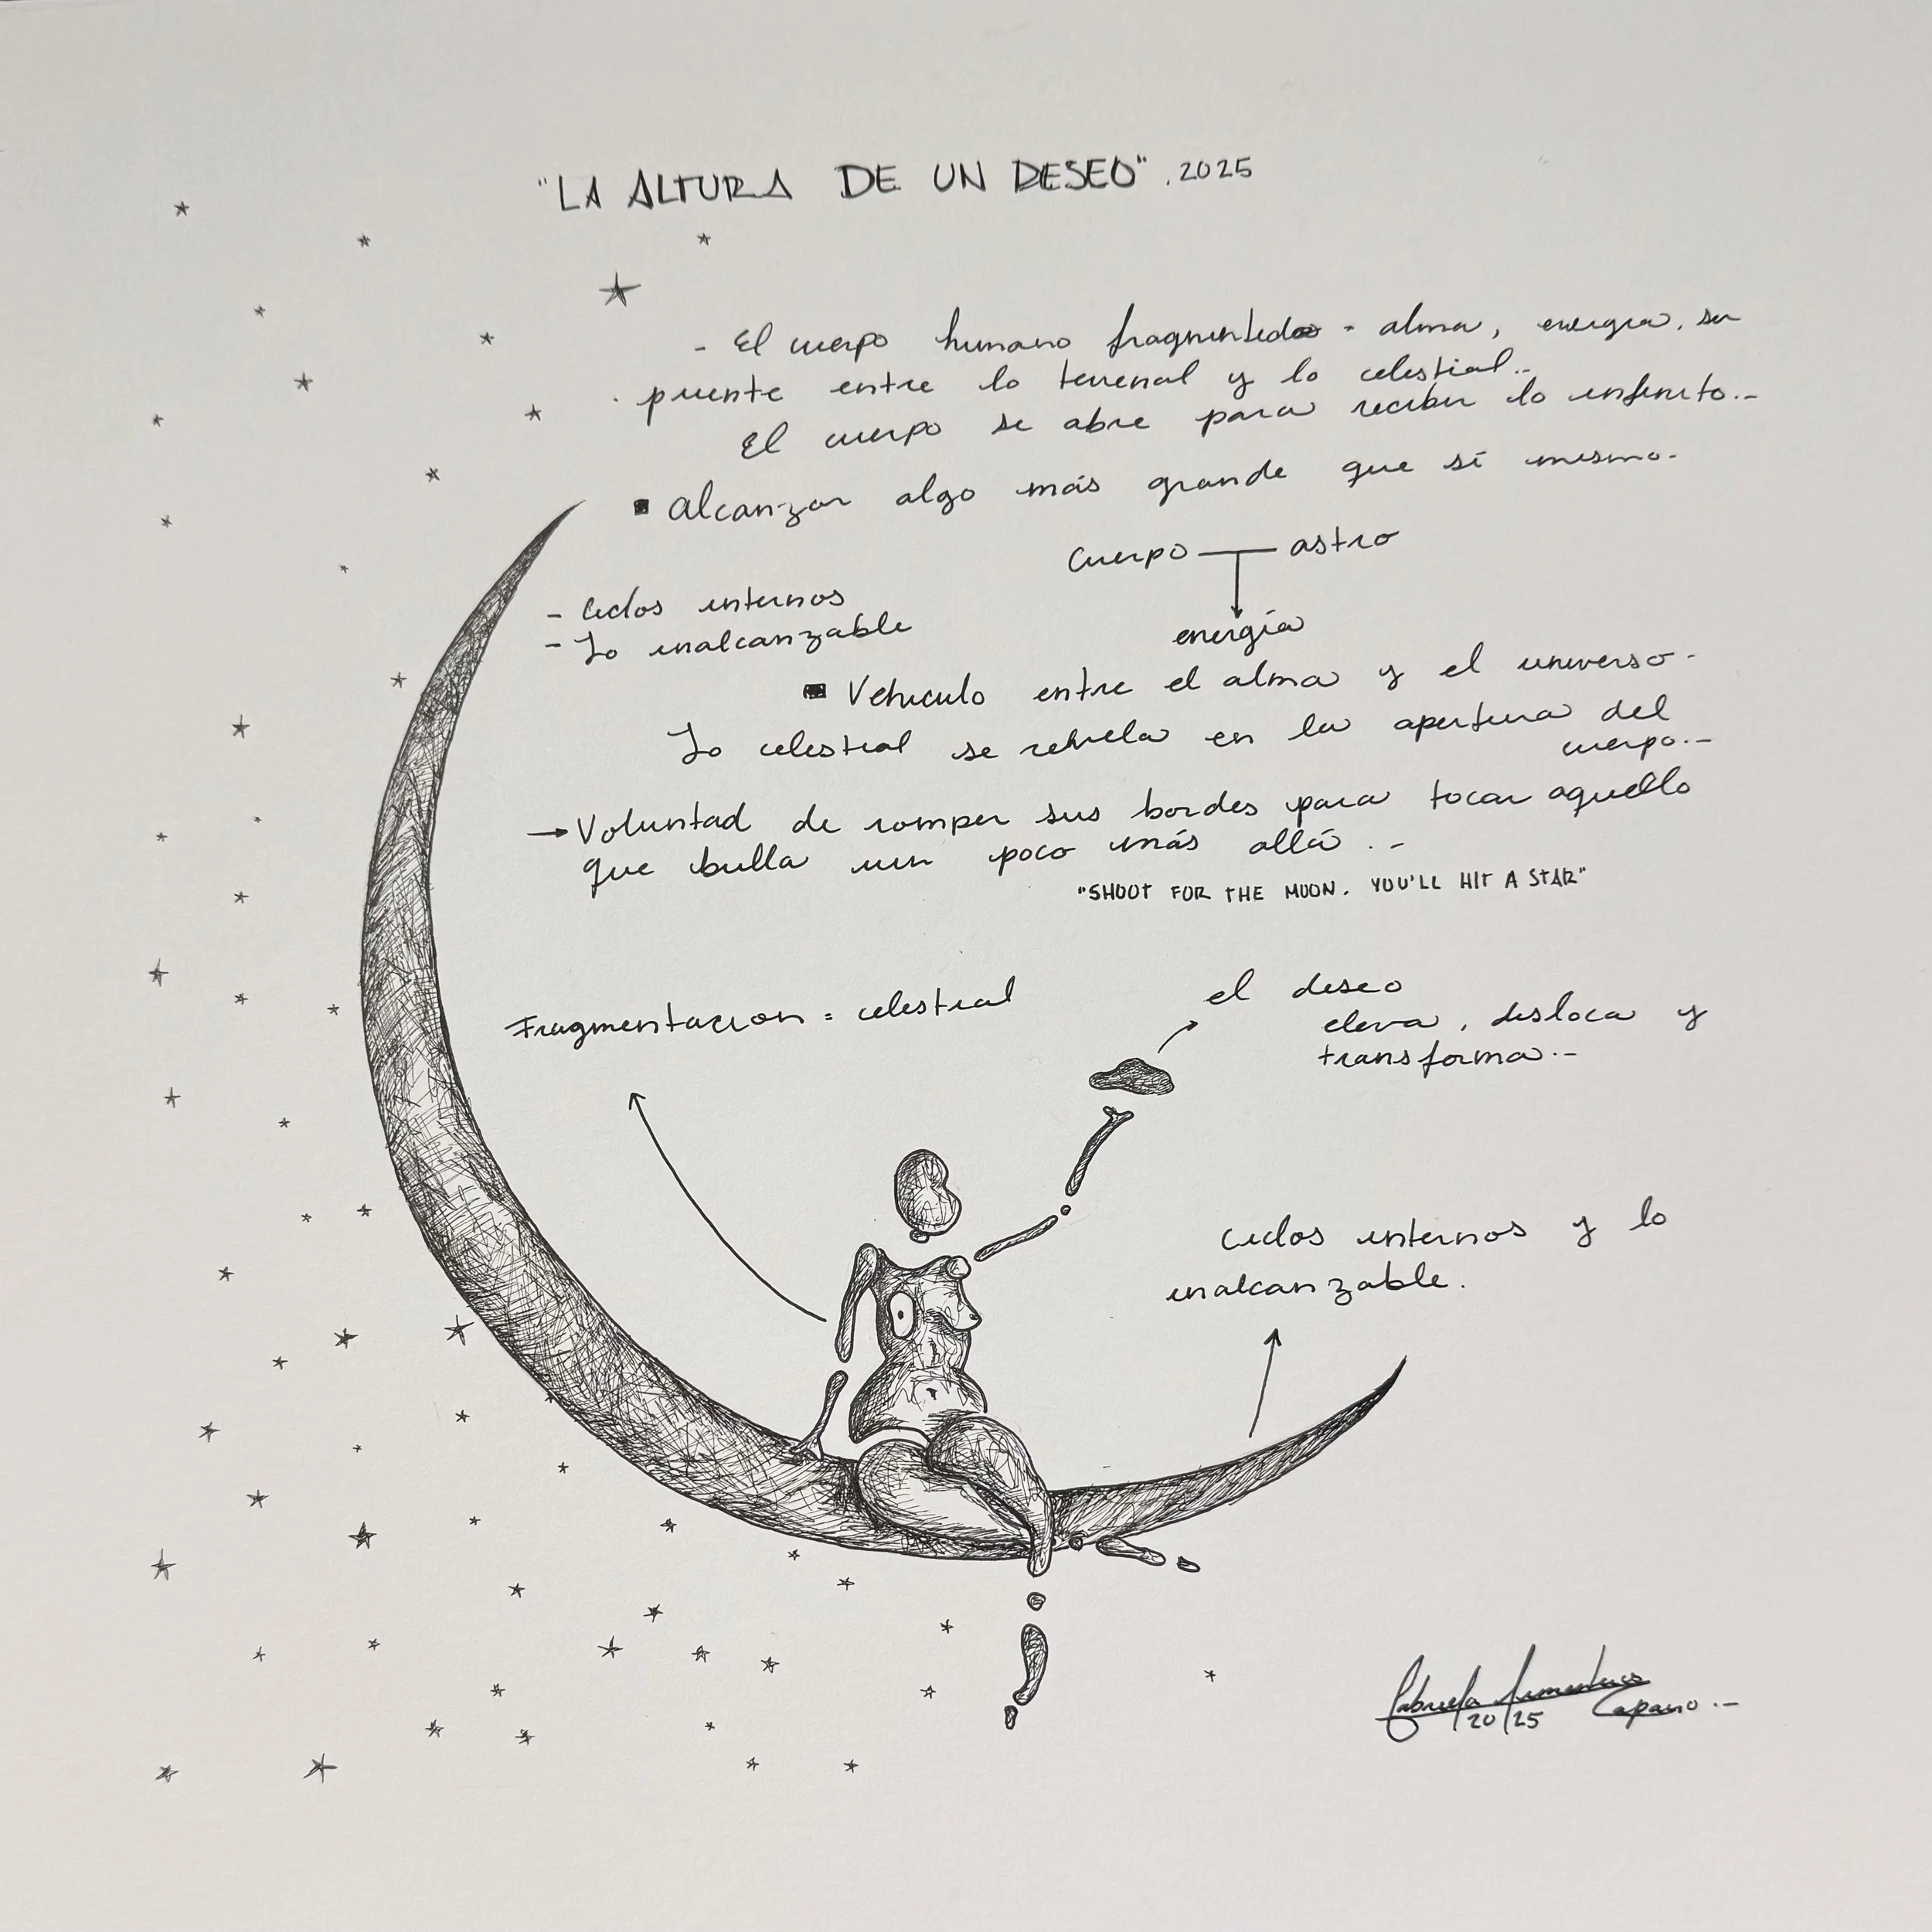 "LA ALTURA DE UN DESEO". 2025
- El cuerpo humano fragmentado - alma, energia, ser
puente entre lo terrenal y lo celestial..
El cuerpo se abre para recibir lo infinito.-
▪ Alcanzar algo más grande que sí mismo.
Cuerpo — astro
energía
- Ciclos internos
- Lo inalcanzable
▪ Vehiculo entre el alma y el universo.
Lo celestial se revela en la apertura del
cuerpo.-
→ Voluntad de romper sus bordes para tocar aquello
que brilla un poco más allá.-
"SHOOT FOR THE MOON. YOU'LL HIT A STAR"
el deseo
eleva, disloca y
transforma.-
Fragmentacion = celestial
Ciclos internos y lo
inalcanzable.
Gabriela
Capano.-
20/25